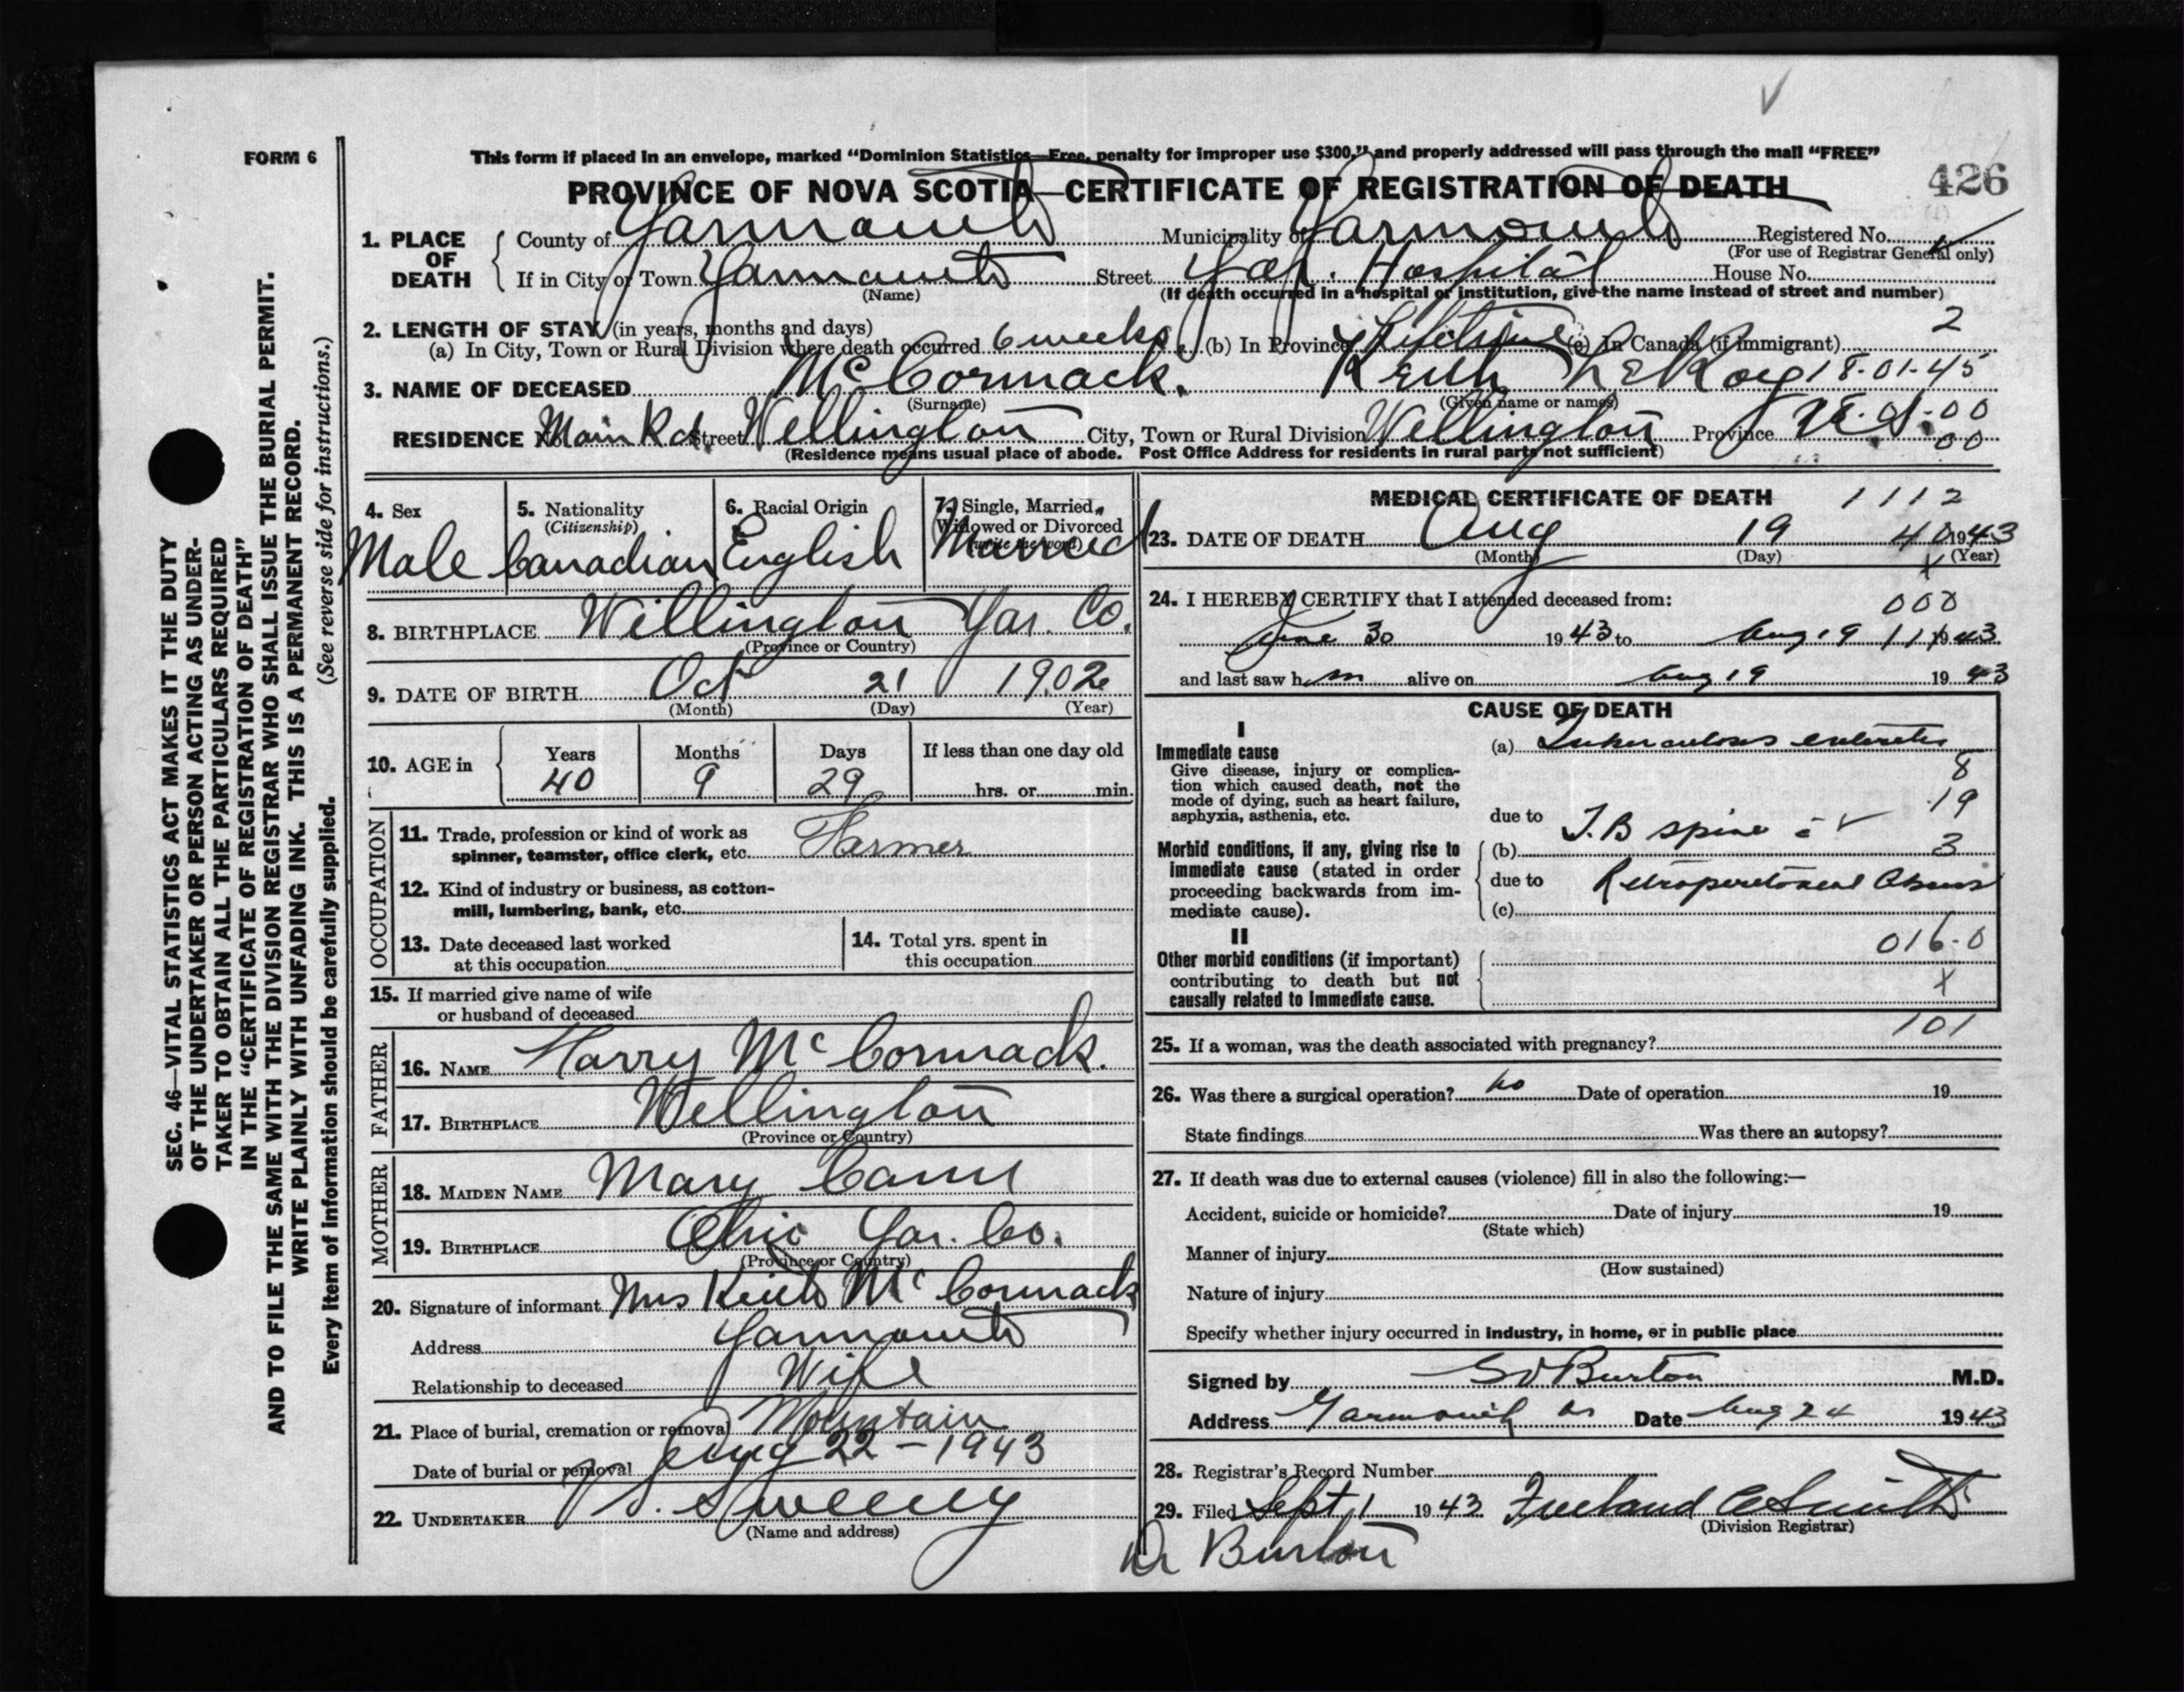 FORM 6
This form if placed in an envelope, marked "Dominion Statistics—Free, penalty for improper use $300," and properly addressed will pass through the mail "FREE"
PROVINCE OF NOVA SCOTIA—CERTIFICATE OF REGISTRATION OF DEATH
426
1. PLACE OF DEATH
County of Yarmouth Municipality of Yarmouth Registered No.
(For use of Registrar General only)
If in City or Town Yarmouth Street Yar. Hospital House No.
(Name) (If death occurred in a hospital or institution, give the name instead of street and number)
2. LENGTH OF STAY (in years, months and days)
(a) In City, Town or Rural Division where death occurred 6 weeks (b) In Province Lifetime (c) In Canada (if immigrant) 2
3. NAME OF DECEASED McCormack. Keith LeRoy 18-01-45
(Surname) (Given name or names)
RESIDENCE No. Main Rd Street Wellington City, Town or Rural Division Wellington Province N.S. 00
00
(Residence means usual place of abode. Post Office Address for residents in rural parts not sufficient)
4. Sex
Male
5. Nationality
(Citizenship)
Canadian
6. Racial Origin
English
7. Single, Married, Widowed or Divorced
(write the word)
Married
8. BIRTHPLACE Wellington Yar. Co.
(Province or Country)
9. DATE OF BIRTH Oct 21 1902
(Month) (Day) (Year)
10. AGE in
Years Months Days If less than one day old
40 9 29 hrs. or min.
OCCUPATION
11. Trade, profession or kind of work as
spinner, teamster, office clerk, etc. Farmer
12. Kind of industry or business, as cotton-
mill, lumbering, bank, etc.
13. Date deceased last worked
at this occupation
14. Total yrs. spent in
this occupation
15. If married give name of wife
or husband of deceased
FATHER
16. NAME Harry McCormack.
17. BIRTHPLACE Wellington
(Province or Country)
MOTHER
18. MAIDEN NAME Mary Cann
19. BIRTHPLACE Ohio Yar. Co.
(Province or Country)
20. Signature of informant Mrs Keith McCormack
Address Yarmouth
Relationship to deceased Wife
21. Place of burial, cremation or removal Mountain
Date of burial or removal Aug 22 – 1943
22. UNDERTAKER V.S. Sweeny
(Name and address)
MEDICAL CERTIFICATE OF DEATH 1112
23. DATE OF DEATH Aug 19 40 1943
(Month) (Day) (Year)
X
24. I HEREBY CERTIFY that I attended deceased from: 000
June 30 1943 to Aug 19 111 1943
and last saw him alive on Aug 19 1943
CAUSE OF DEATH
I
Immediate cause
Give disease, injury or complica-
tion which caused death, not the
mode of dying, such as heart failure,
asphyxia, asthenia, etc.
(a) Tuberculosis enteritis
8
19
due to T.B spine c̄
Morbid conditions, if any, giving rise to
immediate cause (stated in order
proceeding backwards from im-
mediate cause).
(b) 3
due to Retroperitoneal Abscess
(c)
II
Other morbid conditions (if important)
contributing to death but not
causally related to immediate cause.
016-0
X
101
25. If a woman, was the death associated with pregnancy?
26. Was there a surgical operation? no Date of operation 19
State findings Was there an autopsy?
27. If death was due to external causes (violence) fill in also the following:—
Accident, suicide or homicide? Date of injury 19
(State which)
Manner of injury
(How sustained)
Nature of injury
Specify whether injury occurred in industry, in home, or in public place
Signed by Burton M.D.
Address Yarmouth ns Date Aug 24 1943
28. Registrar's Record Number
29. Filed Sept 1 1943 Freeland C Smith
(Division Registrar)
Dr Burton
SEC. 46—VITAL STATISTICS ACT MAKES IT THE DUTY
OF THE UNDERTAKER OR PERSON ACTING AS UNDER-
TAKER TO OBTAIN ALL THE PARTICULARS REQUIRED
IN THE "CERTIFICATE OF REGISTRATION OF DEATH"
AND TO FILE THE SAME WITH THE DIVISION REGISTRAR WHO SHALL ISSUE THE BURIAL PERMIT.
WRITE PLAINLY WITH UNFADING INK. THIS IS A PERMANENT RECORD.
Every item of information should be carefully supplied. (See reverse side for instructions.)